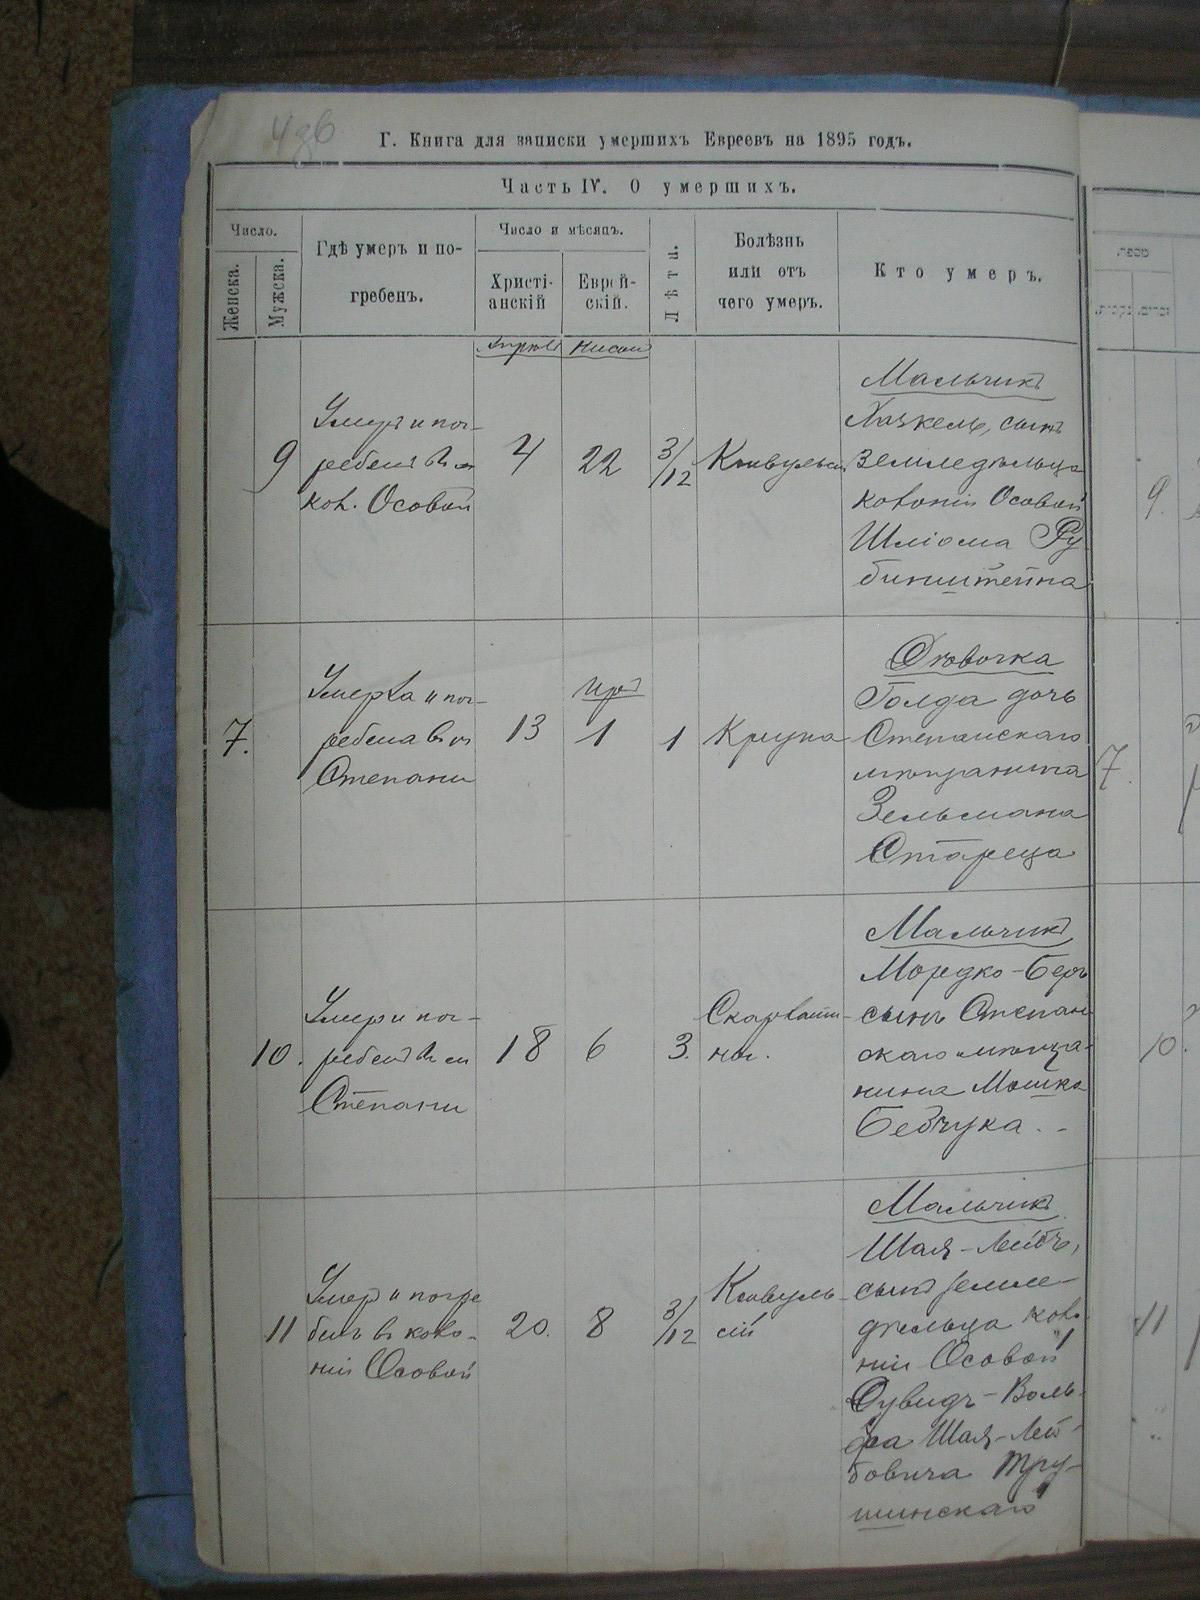 Г. Книга для записи умершихъ Евреевъ на 1895 годъ.
Часть IV. О умершихъ.
Число.
Женска.
Мужска.
Гдѣ умеръ и по-
гребенъ.
Число и мѣсяцъ.
Христі-
анскій
Еврей-
скій.
Лѣта.
Болѣзнь
или отъ
чего умеръ.
Кто умеръ.
Нисан
9
Умеръ и пог-
ребенъ въ
кол. Осовой
4
22
3/12
Конвульсіи
Мальчикъ
Хаскель, сынъ
земледѣльца
колоніи Осовой
Шліома Ру
бинштейна
7.
Умерла и пог-
ребена въ м
Степани
13
Іяръ
1
1
Крупа
Дѣвочка
Голда дочь
Степанскаго
мѣщанина
Зельмана
Стареца
10.
Умеръ и пог-
ребенъ въ м
Степани
18
6
3.
Скарлати-
ны.
Мальчикъ
Мордко-Беръ
сынъ Степан
скаго мѣща-
нина Мошка
Бебчука
11
Умеръ и погре
бенъ въ коло-
ніи Осовой
20.
8
3/12
Конвуль-
сій
Мальчикъ
Шая-Лейбъ,
сынъ земле-
дѣльца коло
ніи Осовой
Дувидъ-Воль-
фа Шая-Лей-
бовича Тру-
шинскаго
מספר.
נקבות.
זכרים.
9.
7.
10.
11